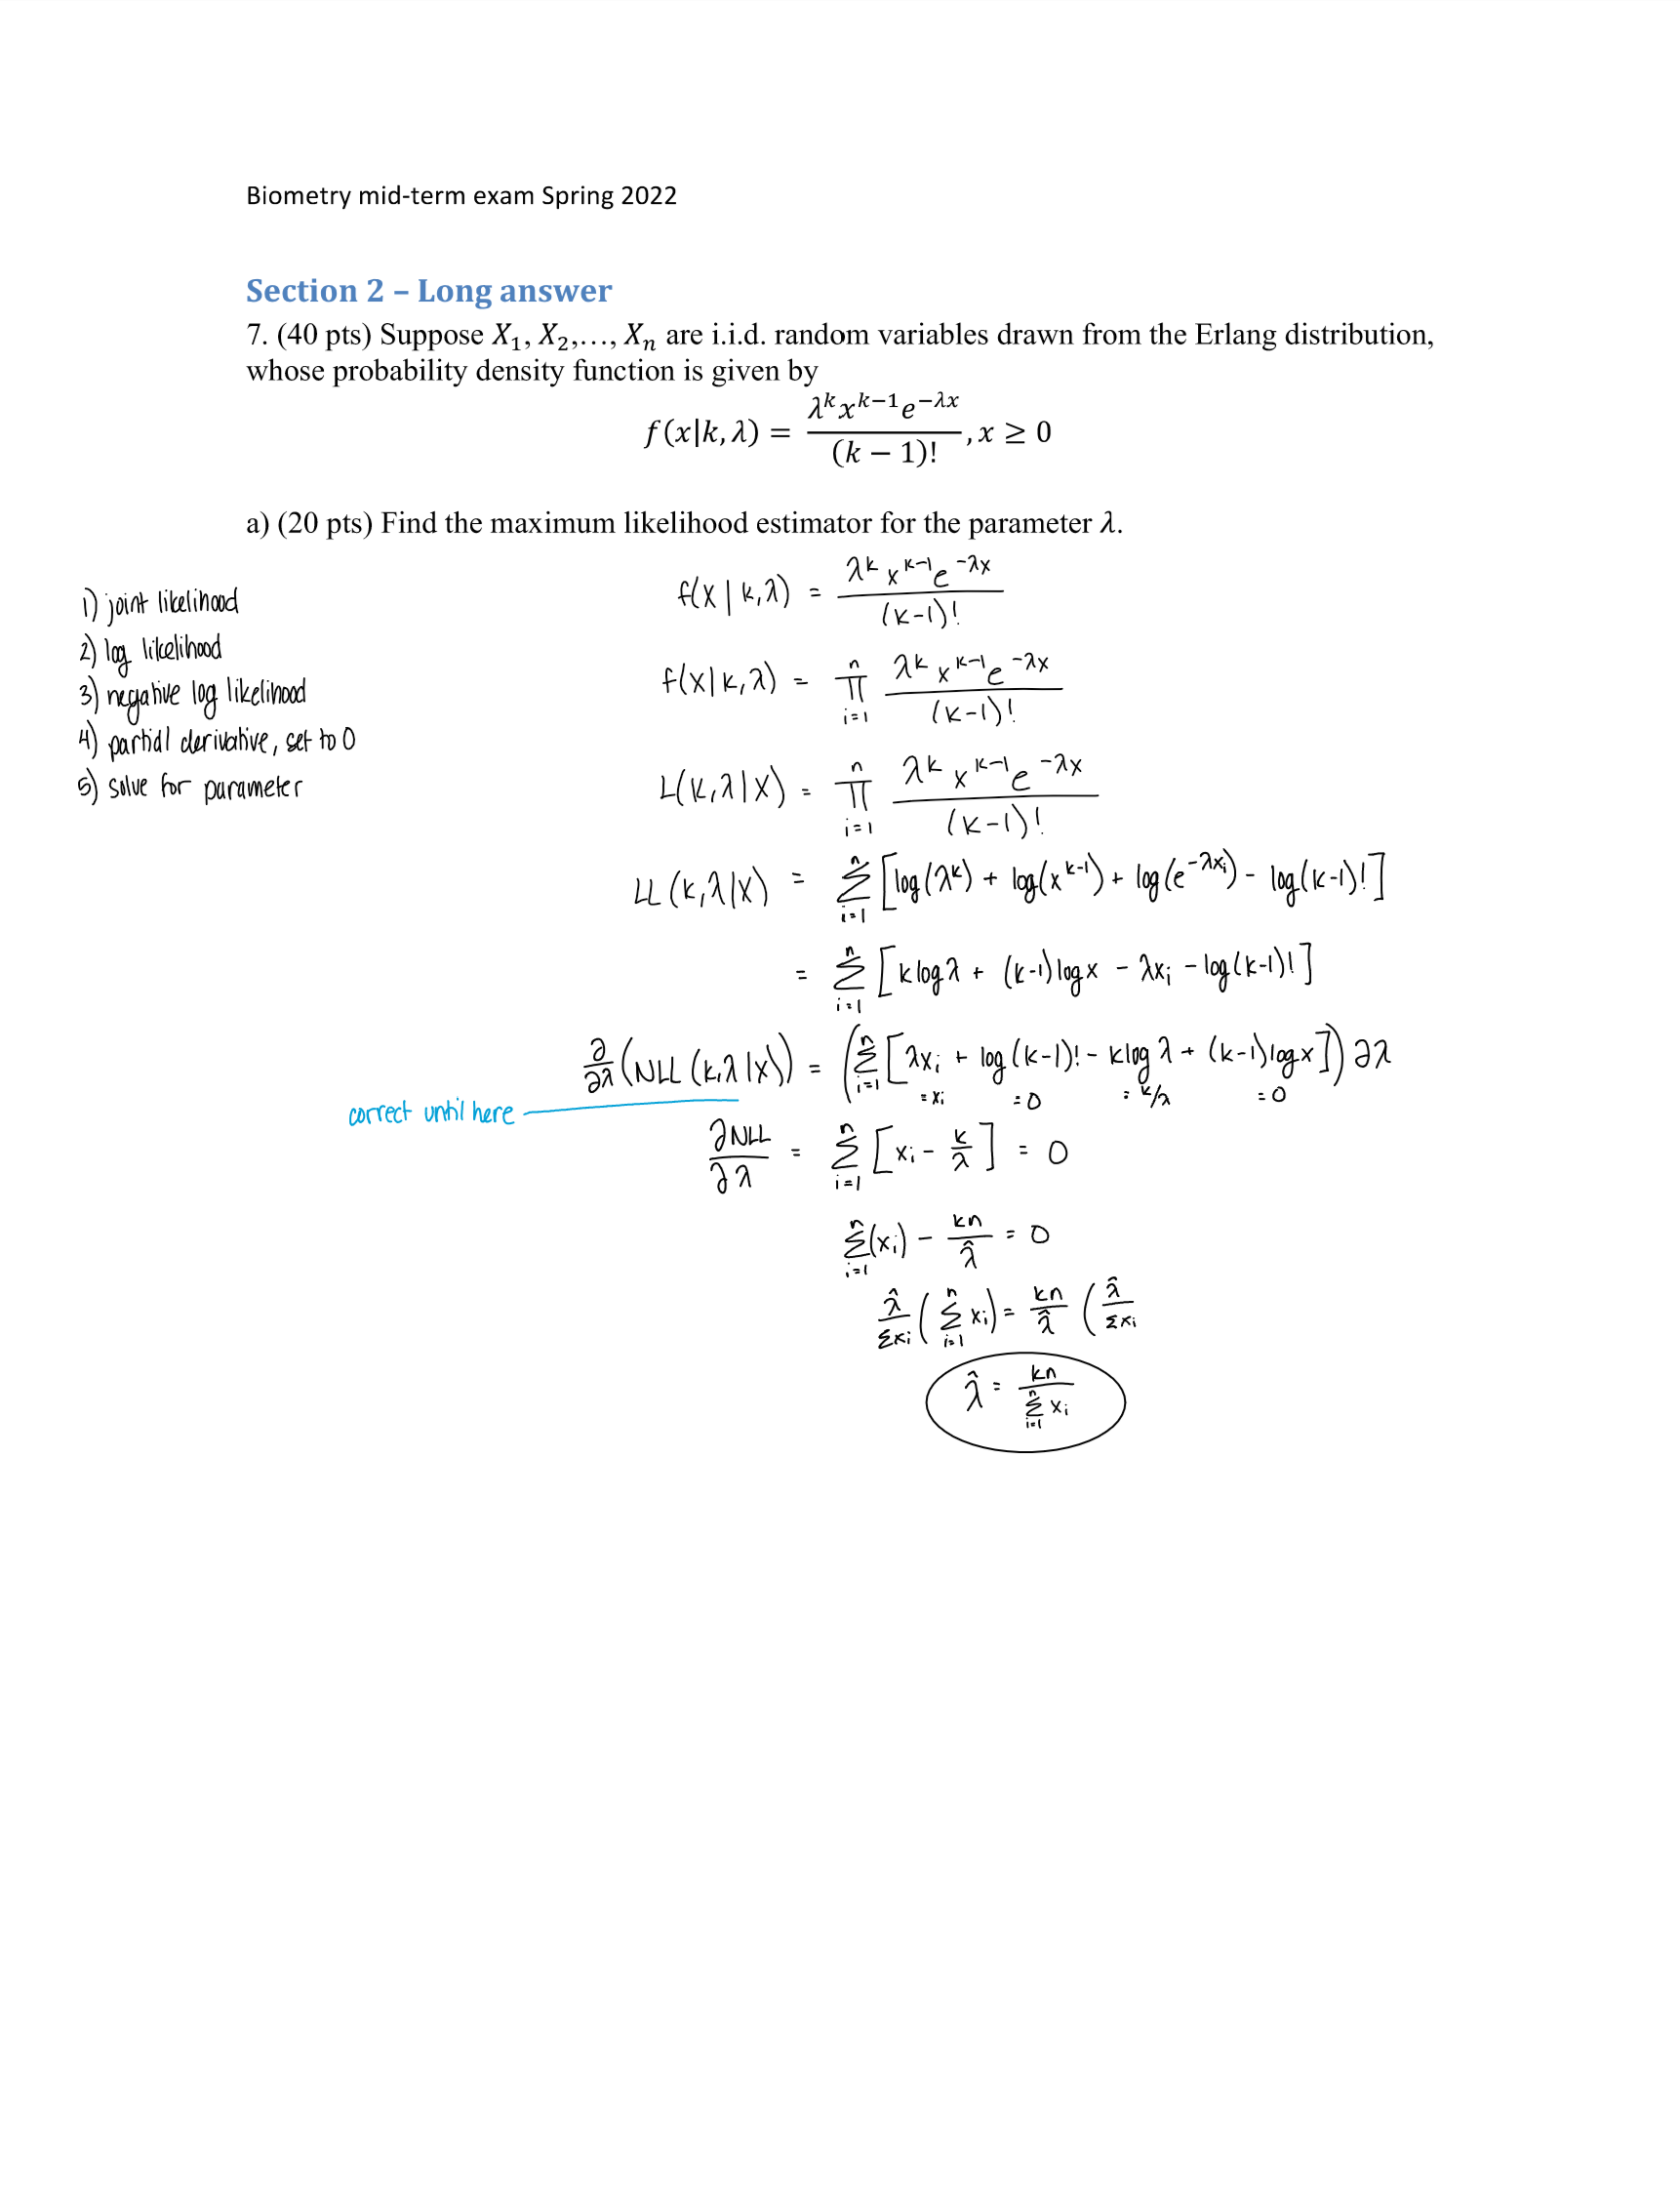 Biometry mid-term exam Spring 2022
Section 2 – Long answer
7. (40 pts) Suppose X₁, X₂,…, Xₙ are i.i.d. random variables drawn from the Erlang distribution,
whose probability density function is given by
f(x|k, λ) = λᵏxᵏ⁻¹e⁻λx / (k − 1)! , x ≥ 0
a) (20 pts) Find the maximum likelihood estimator for the parameter λ.
1) joint likelihood
2) log likelihood
3) negative log likelihood
4) partial derivative, set to 0
5) solve for parameter
f(x | k, λ) = λᵏ xᵏ⁻¹ e^(-λx) / (k-1)!
f(x | k, λ) = ∏ᵢ₌₁ⁿ λᵏ xᵏ⁻¹ e^(-λx) / (k-1)!
L(k, λ | x) = ∏ᵢ₌₁ⁿ λᵏ xᵏ⁻¹ e^(-λx) / (k-1)!
LL (k, λ | x) = Σᵢ₌₁ⁿ [log(λᵏ) + log(xᵏ⁻¹) + log(e^(-λxᵢ)) - log(k-1)!]
= Σᵢ₌₁ⁿ [k log λ + (k-1) log x - λxᵢ - log(k-1)!]
∂/∂λ (NLL (k, λ | x)) = (Σᵢ₌₁ⁿ [λxᵢ + log(k-1)! - k log λ + (k-1) log x]) ∂λ
= xᵢ = 0 = k/λ = 0
correct until here
∂NLL/∂λ = Σᵢ₌₁ⁿ [xᵢ - k/λ] = 0
Σᵢ₌₁ⁿ (xᵢ) - kn/λ̂ = 0
λ̂/Σxᵢ (Σᵢ₌₁ⁿ xᵢ) = kn/λ̂ (λ̂/Σxᵢ
λ̂ = kn / Σᵢ₌₁ⁿ xᵢ